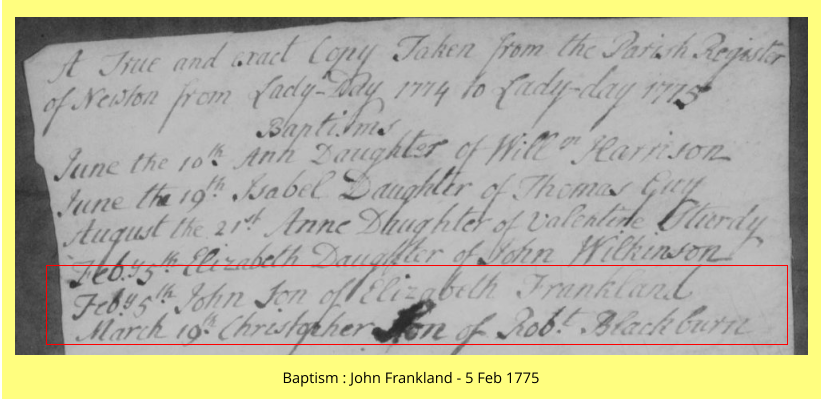 A True and exact Copy Taken from the Parish Register
of Newton from Lady-Day 1774 to Lady-day 1775
Baptisms
June the 10th Ann Daughter of Willm Harrison
June the 19th Isabel Daughter of Thomas Guy
August the 21st Anne Daughter of Valentine Sturdy
Feb.y 5th Elizabeth Daughter of John Wilkinson
Feb.y 5th John Son of Elizabeth Frankland
March 19th Christopher Son of Robt. Blackburn
Baptism : John Frankland - 5 Feb 1775